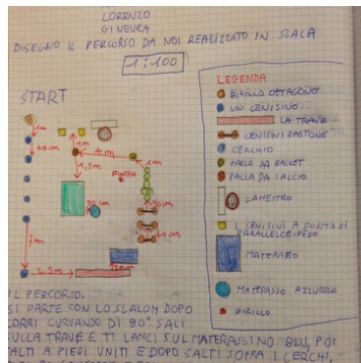 LORENZO
GINEVRA
DISEGNO IL PERCORSO DA NOI REALIZZATO IN SCALA
1:100
START
LEGENDA
BIRILLO OTTAGONO
UN CENISINO
LA TRAVE
CENISINI BASTONE
CERCHIO
PALLA DA BASKET
PALLA DA CALCIO
CANESTRO
I CENISINI A FORMA DI
PARALLELEPIPEDO
MATERASSO
MATERASSO AZZURRO
BIRILLO
IL PERCORSO.
SI PARTE CON LO SLALOM DOPO
CORRI CURVANDO DI 90° SALI
SULLA TRAVE E TI LANCI SUL MATERASSINO BLU, POI
SALTI A PIEDI UNITI E DOPO SALTI SOPRA I CERCHI,